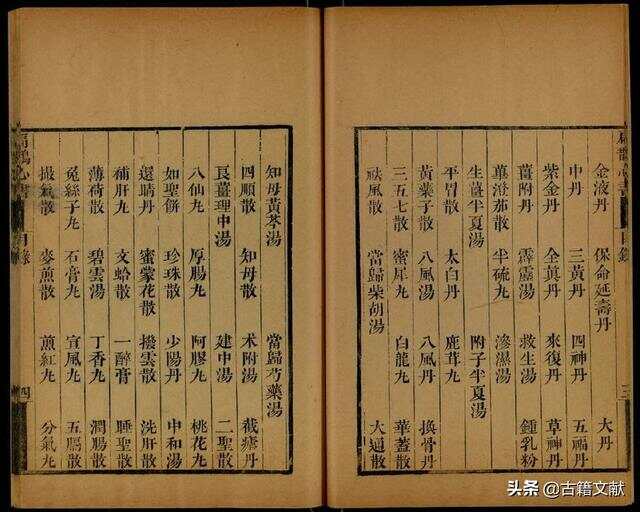 扁鵲心書 目錄 三
金液丹 保命延壽丹 大丹
中丹 三黃丹 四神丹 五福丹
紫金丹 全真丹 來復丹 草神丹
薑附丹 霹靂湯 救生湯 鍾乳粉
蓽澄茄散 半硫丸 滲濕湯
生薑半夏湯 附子半夏湯
平胃散 太白丹 鹿茸丸
黃藥子散 八風湯 八風丹 換骨丹
三五七散 蜜犀丸 白龍丸 華蓋散
祛風散 當歸柴胡湯 大通散
知母黃芩湯 當歸芍藥湯
四順散 知母散 术附湯 截瘧丹
艮薑理中湯 建中湯 二聖散
八仙丸 厚腸丸 阿膠丸 桃花丸
如聖餅 珍珠散 少陽丹 中和湯
還睛丹 蜜蒙花散 撥雲散 洗肝散
補肝丸 文蛤散 一醉膏 睡聖散
薄荷散 碧雲湯 丁香丸 潤腸散
菟絲子丸 石膏丸 宣風丸 五膈散
撮氣散 麥煎散 煎紅丸 分氣丸
扁鵲心書 目錄 四
头条 @古籍文献